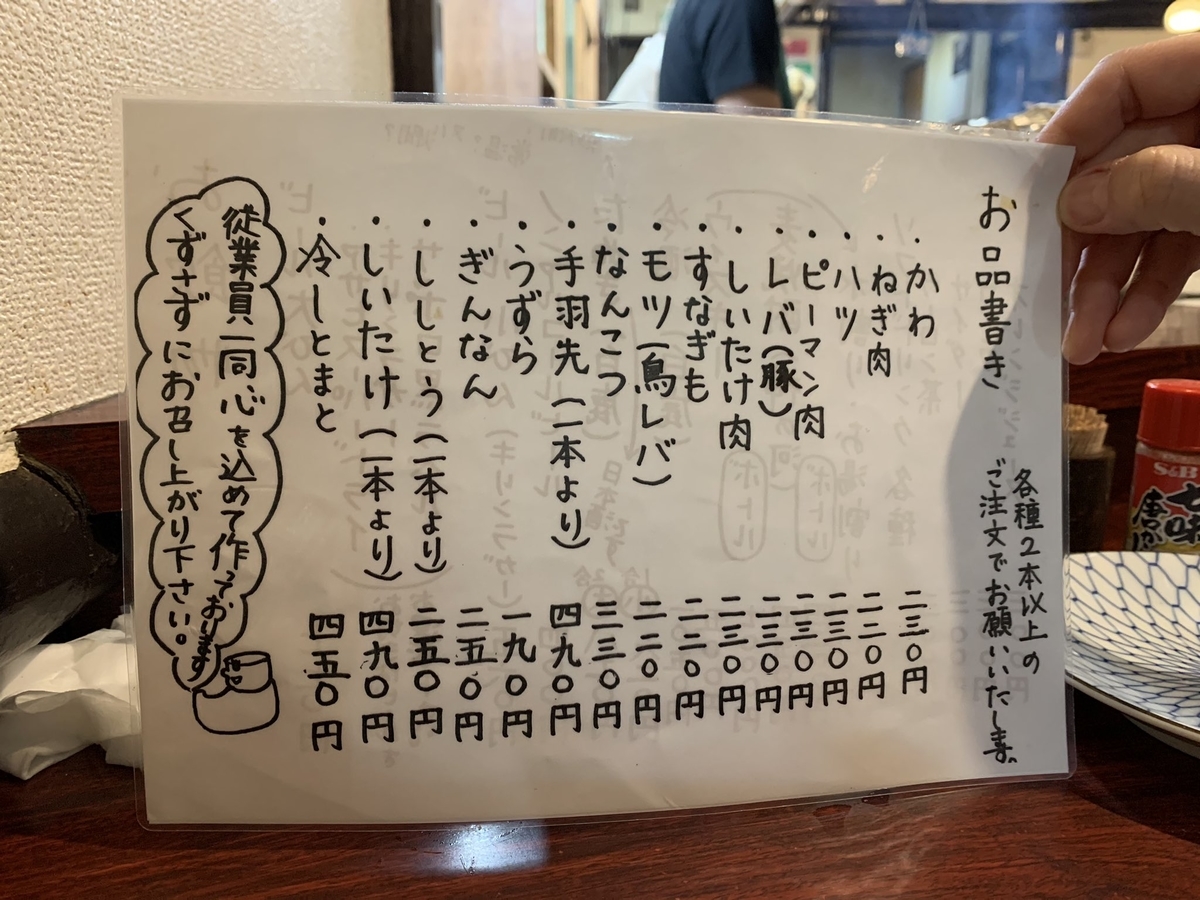 お品書き
各種2本以上の
ご注文でお願いいたします。
・かわ 二三〇円
・ねぎ肉 二二〇円
・ハツ 二三〇円
・ピーマン肉 二三〇円
・レバ(豚) 二三〇円
・しいたけ肉 二三〇円
・すなぎも 二二〇円
・モツ(鳥レバ) 二二〇円
・なんこつ 三三〇円
・手羽先(二本より) 四九〇円
・うずら 一九〇円
・ぎんなん 二五〇円
・ししとう(二本より) 二五〇円
・しいたけ(二本より) 四九〇円
・冷しとまと 四五〇円
従業員一同心を込めて作っております
くずさずにお召し上がり下さい。
S&B
七味